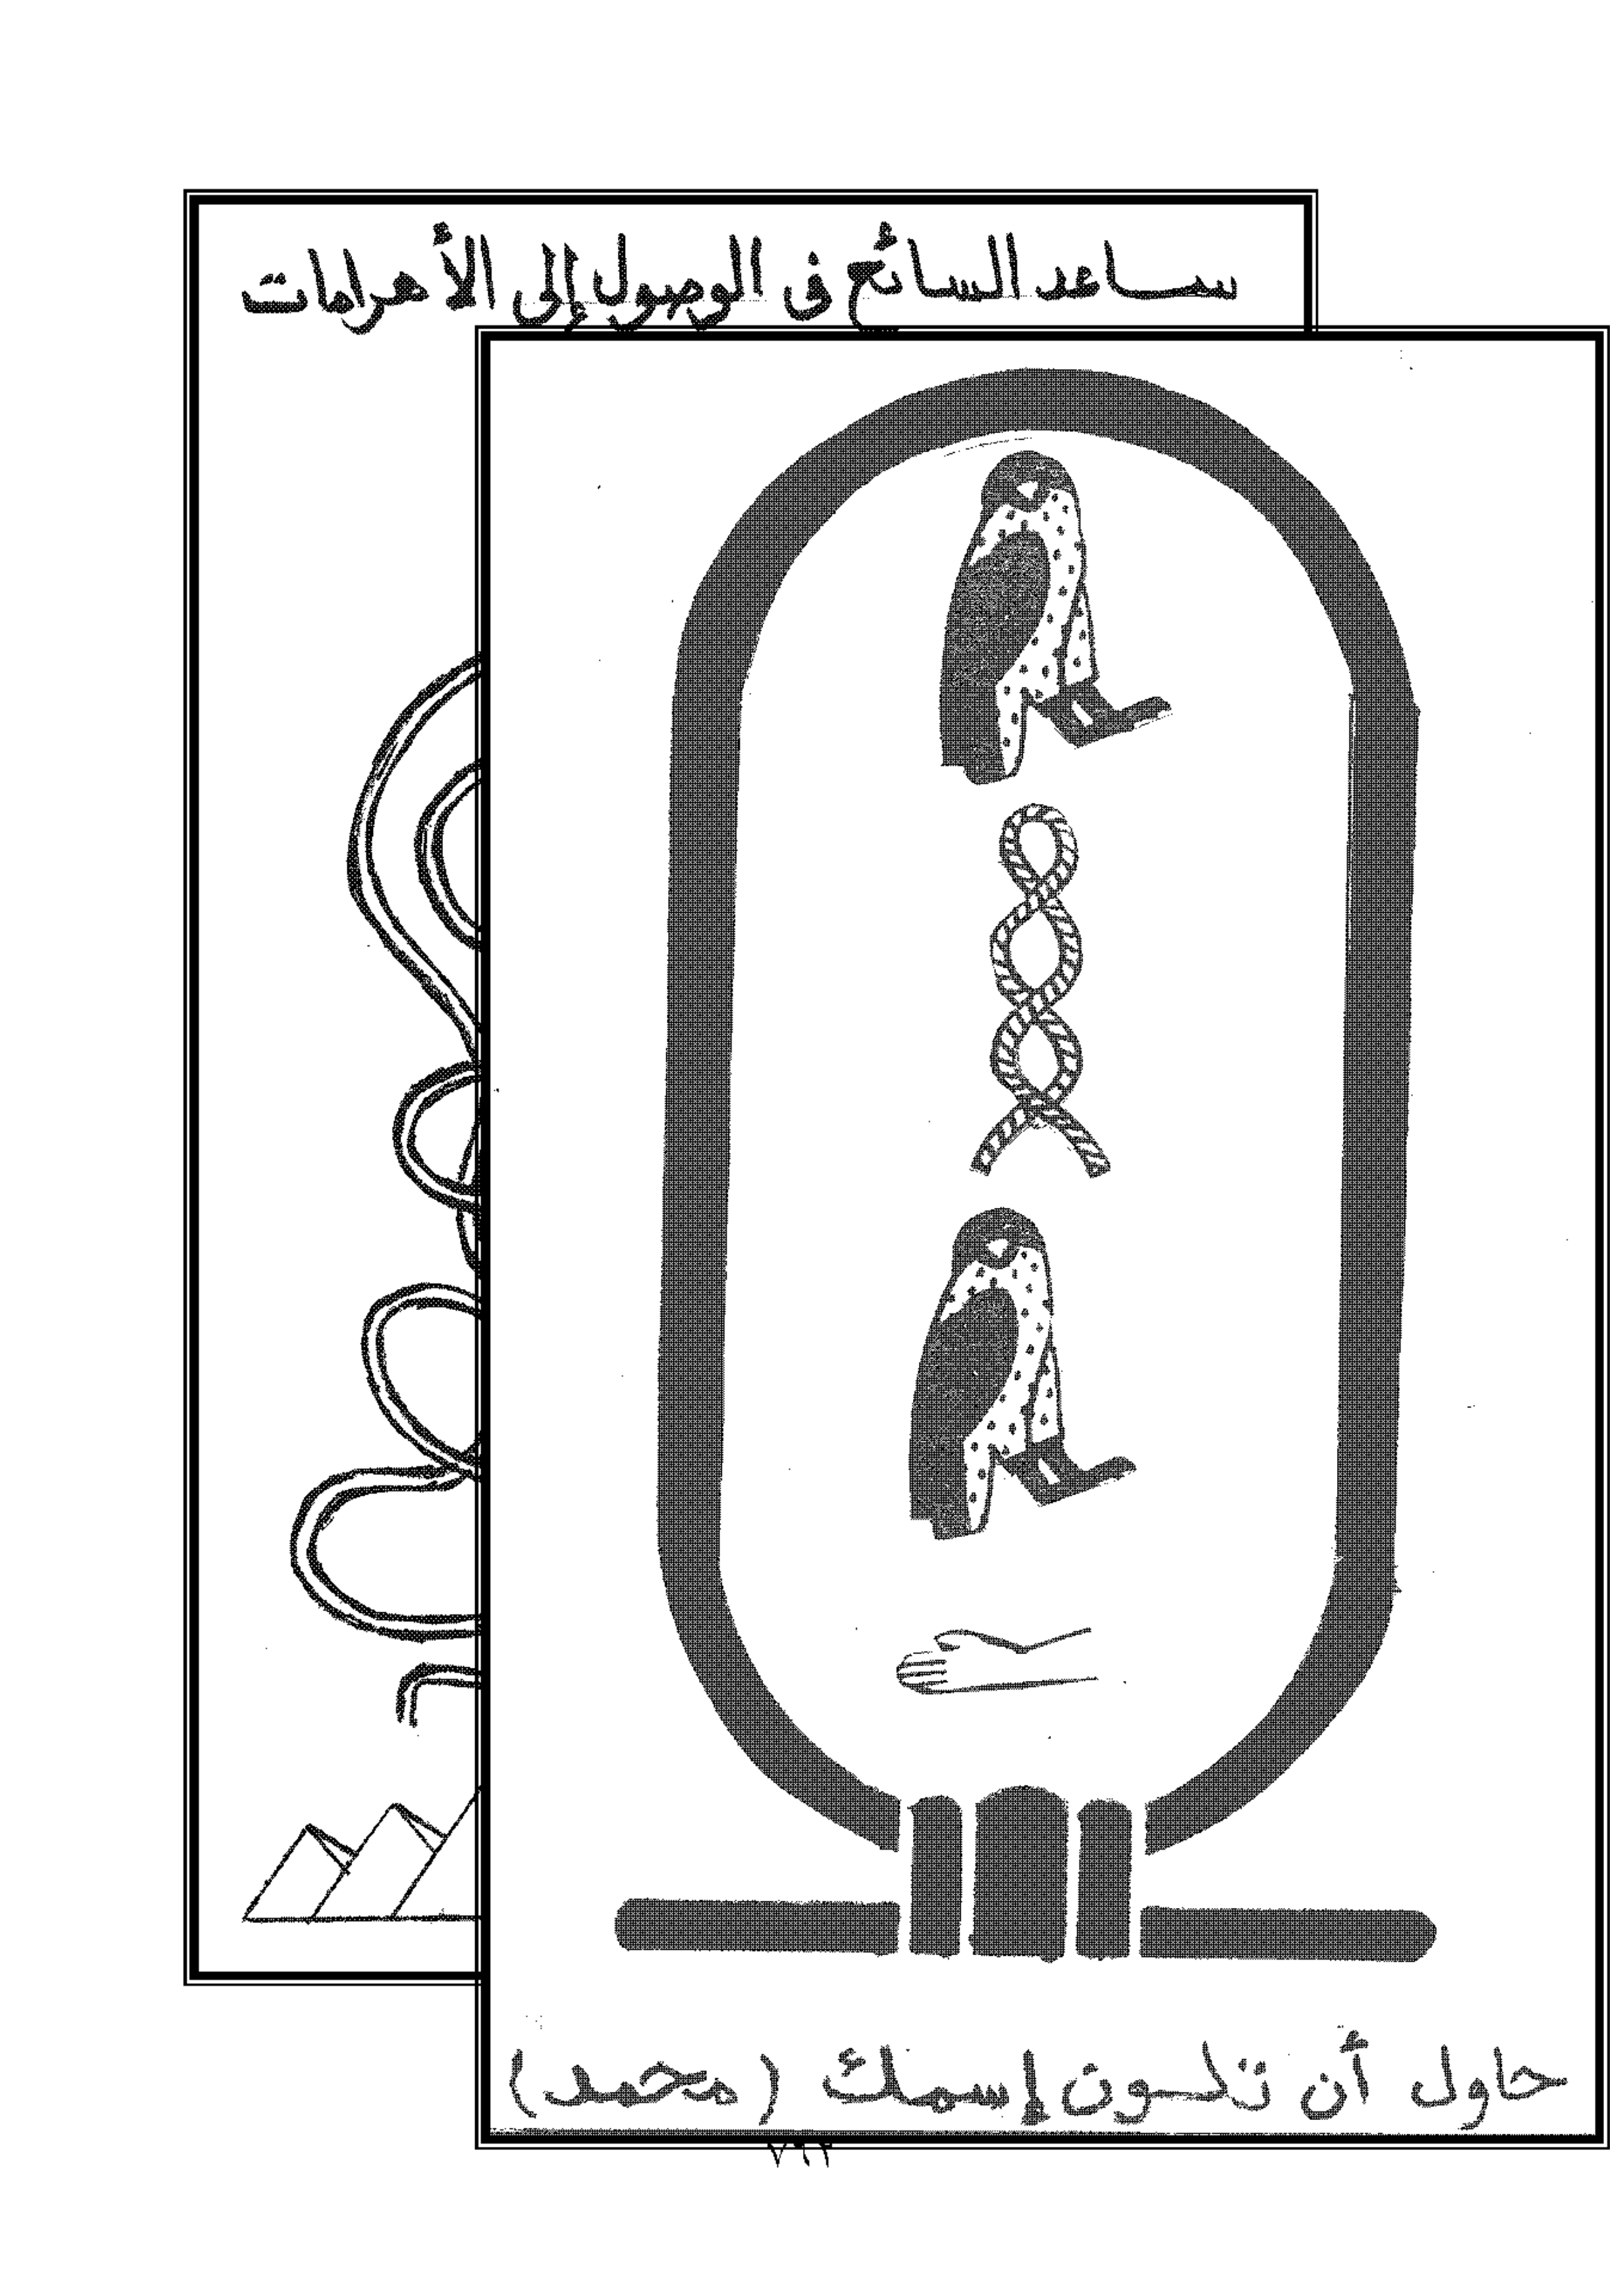 ساعد السائح فى الوصول إلى الأهرامات
حاول أن تلون إسمك (محمد)